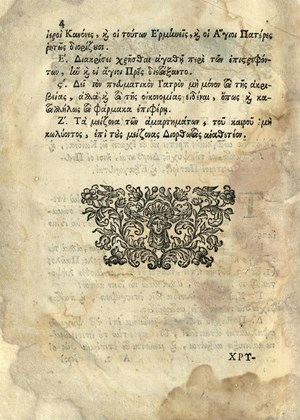 4
ἱεροὶ Κανόνες, ϗ οἱ τούτων Ἑρμηνεῖς, ϗ οἱ Ἅγιοι Πατέρες
ῥητῶς διορίζουσι.
Ε΄. Διακρίσει χρῆσθαι ἀγαθῇ περὶ τῶν ἐπιστρεφόν-
των, ἣν ϗ οἱ ἅγιοι Πρες̀ διετάξαντο.
ς΄. Δεῖ τὸν πνευματικὸν Ἰατρὸν μὴ μόνον τὰ τῆς ἀκρι-
βείας, ἀλλὰ ϗ τὰ τῆς οἰκονομίας εἰδέναι, ὅπως ϗ κα-
ταλλήλως τὰ φάρμακα ἐπιφέρῃ.
Ζ΄. Τὰ μείζονα τῶν ἁμαρτημάτων, τοῦ καιροῦ μὴ
κωλύοντος, ἐπὶ τοὺς μείζονας
ΧΡΤ-